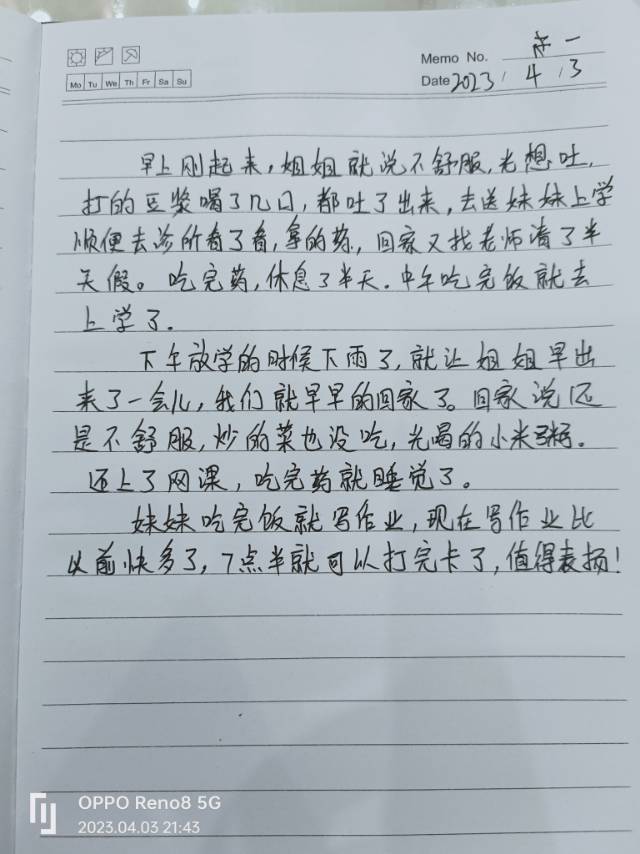 Memo No. 周一
Mo Tu We Th Fr Sa Su
Date 2023 / 4 / 3
早上刚起来，姐姐就说不舒服，光想吐，
打的豆浆喝了几口，都吐了出来，去送妹妹上学
顺便去诊所看了看，拿的药，回家又找老师请了半
天假。吃完药，休息了半天．中午吃完饭就去
上学了．
下午放学的时候下雨了，就让姐姐早出
来了一会儿，我们就早早的回家了。回家说还
是不舒服，炒的菜也没吃，光喝的小米粥．
还上了网课，吃完药就睡觉了。
妹妹吃完饭就写作业，现在写作业比
以前快多了，7点半就可以打完卡了，值得表扬！
OPPO Reno8 5G
2023.04.03 21:43